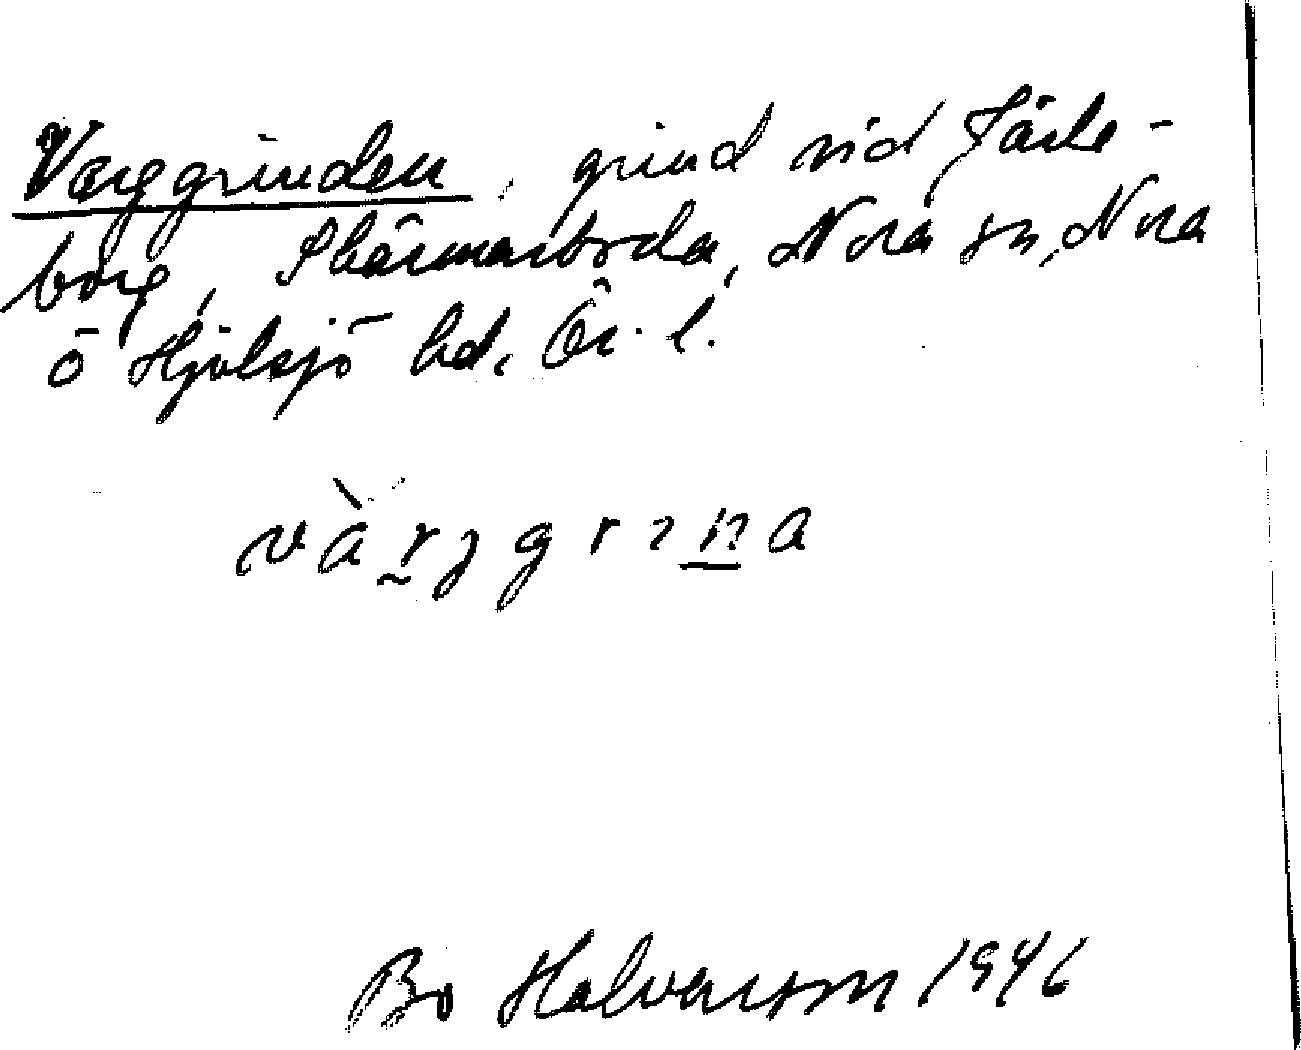 Varggrinden, grind vid Järle-
borg, Skärmarboda, Nora sn, Nora
o Hjulsjö hd. Ör. l.
Bo Halvarson 1946